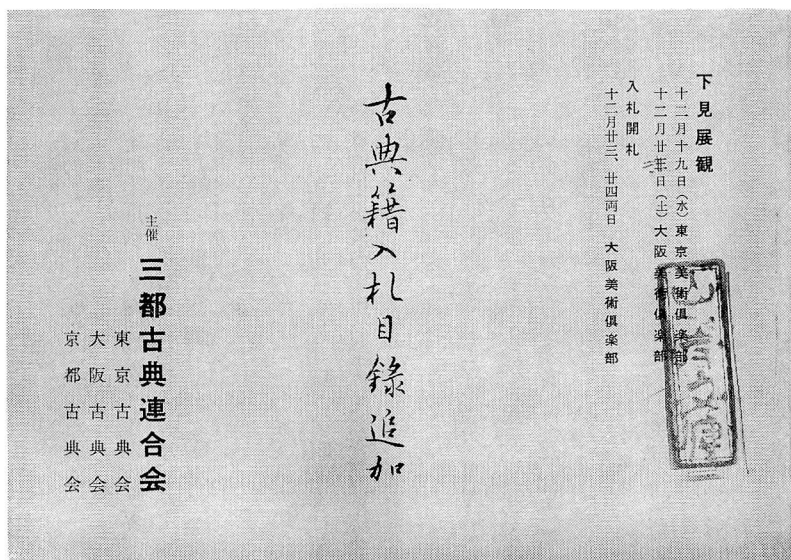 下見展観
十二月十九日（水）東京美術倶楽部
十二月廿二日（土）大阪美術倶楽部
入札開札
十二月廿三、廿四両日 大阪美術倶楽部
古典籍入札目録追加
主催 三都古典連合会
東京古典会
大阪古典会
京都古典会